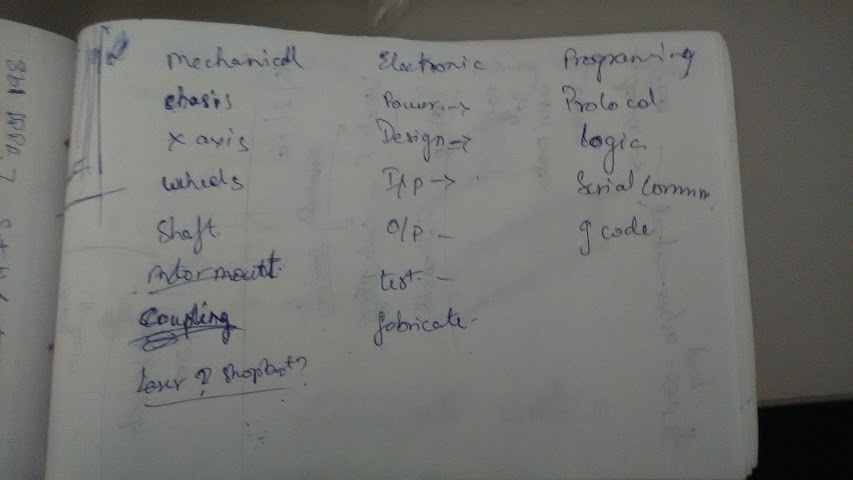 Mechanical Electronic Programing
chasis Power → Protocol
x axis Design → Logic
wheels I/p → Serial Comm
Shaft O/p - g code
motor mount test -
Coupling fabricate -
Laser ? Shopbot?